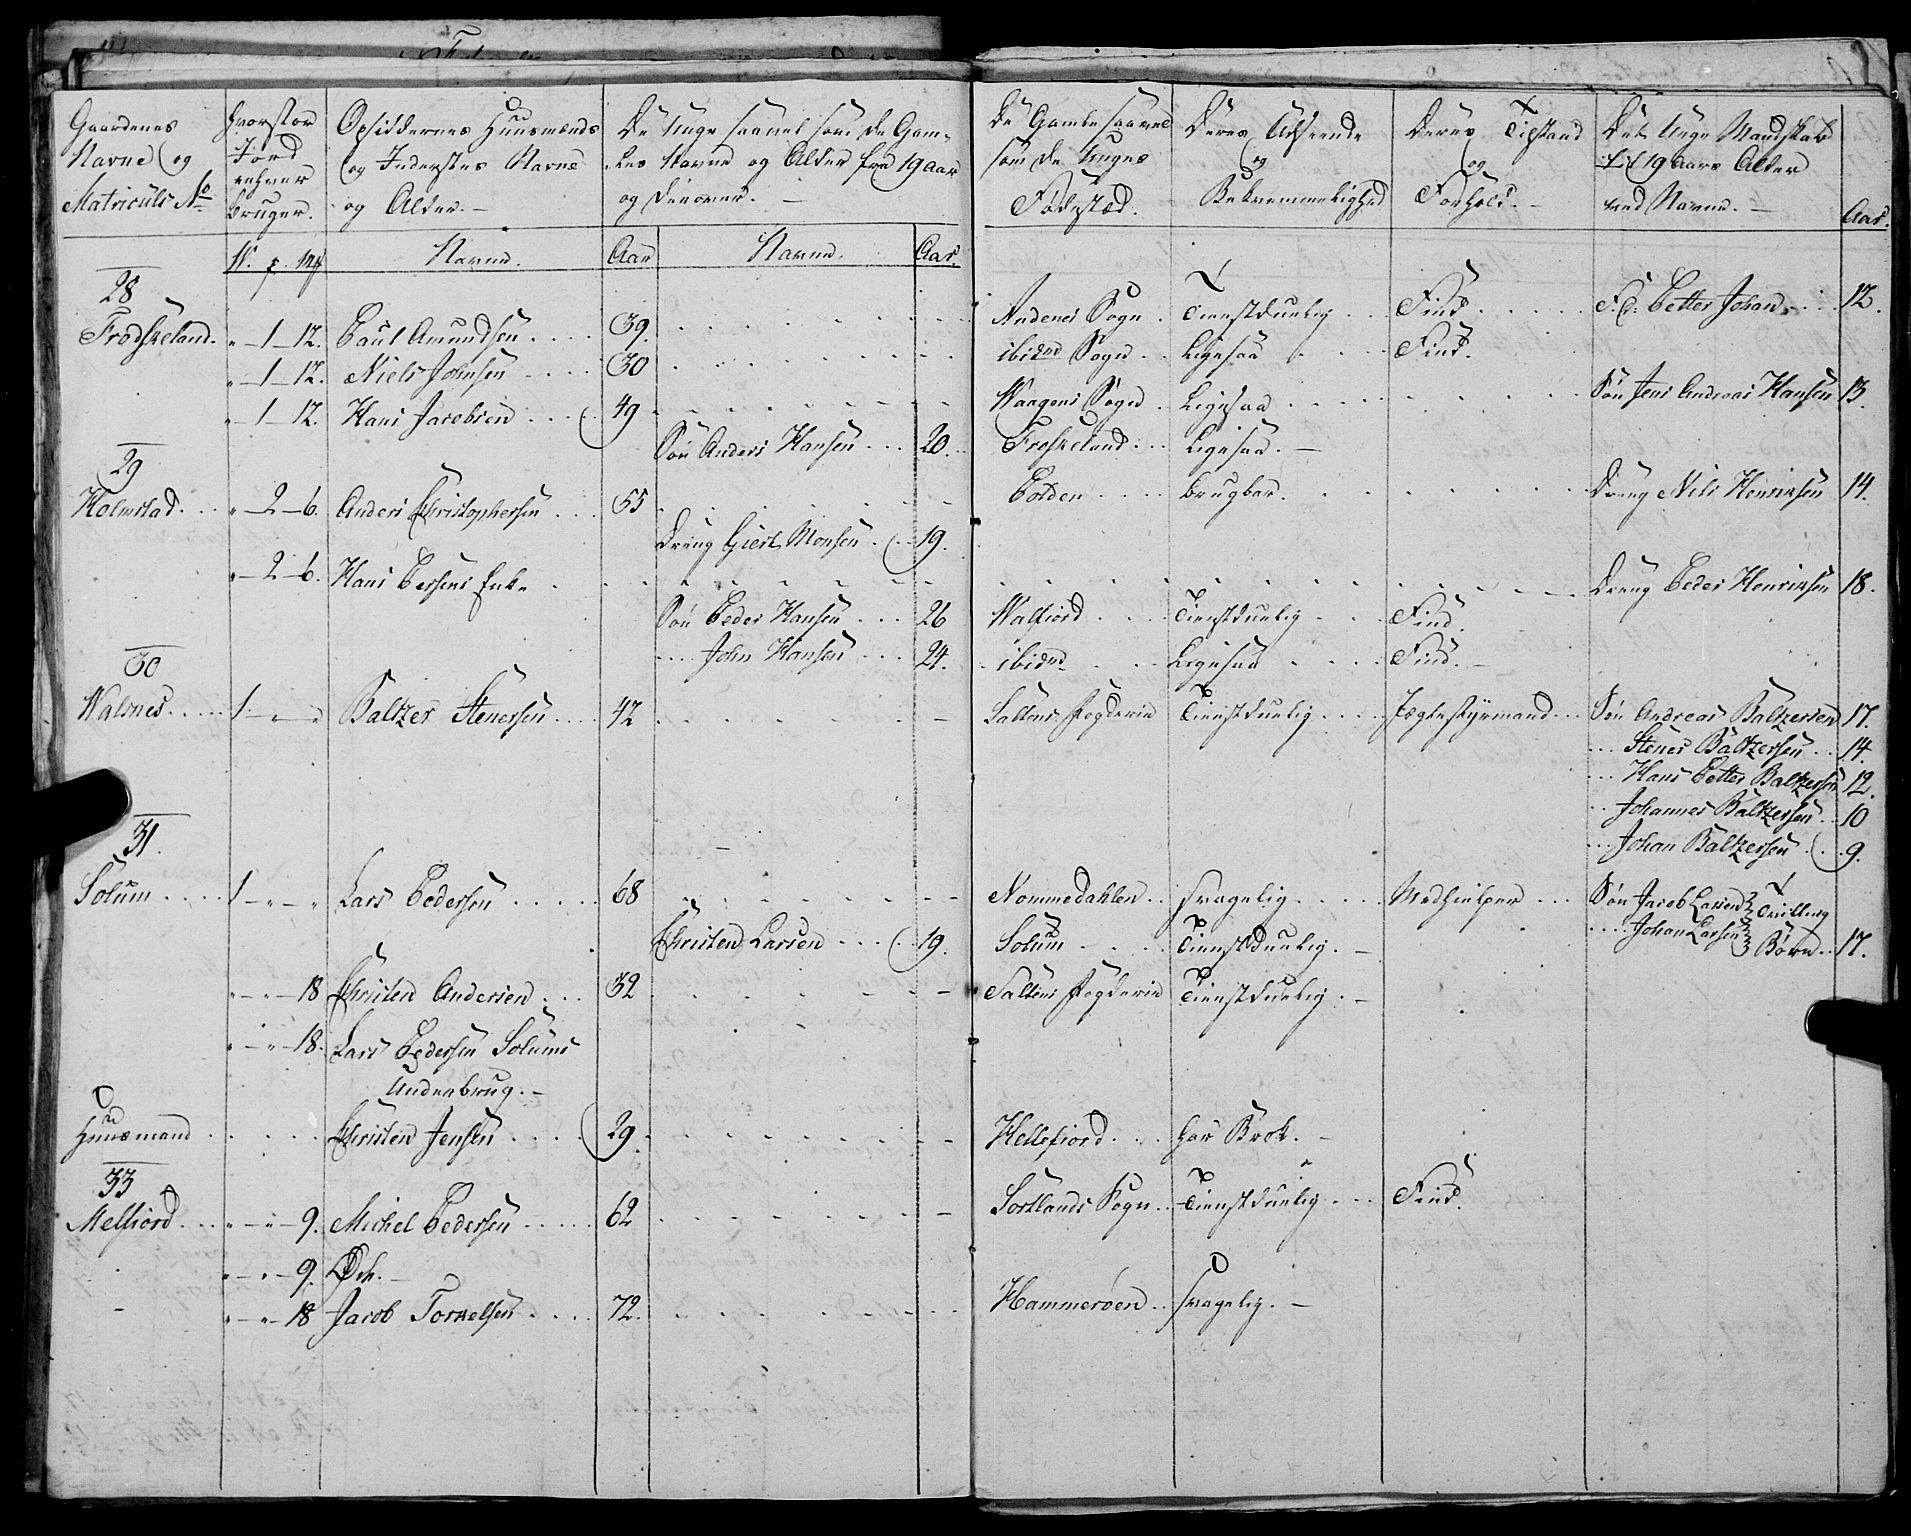 Gaardenes
Navne og
Matriculs No
Hvorstor
Jord
enhver
bruger.
Opsiddernes Huusmænds
og Inderstes Navne
og Alder. —
De Unge saavel som de Gam-
les Navne og Alder fra 19 aar
og derover. —
De Gamle saavel
som de Unges
Fødestæd.
Deres Udseende
og
Bekvemmelighed
Deres Tilstand
og
Forhold. —
Det Unge Mandskab
til 19 aars Alder
ved Navne. —
Aar.
W. p. mk
Navne.
Aar
Navne.
Aar.
28
Frodskeland. „ — 1 — 12. Paul Amundsen .... 39. Andenes Sogn. Tienstduelig ... Find ..... Petter Johan ... 12.
„ — 1 — 12. Niels Johnsen .... 30 ibidm Sogn .. Ligesaa .... Find.
„ — 1 — 12. Hans Jacobsen .... 49 Waagens Sogn . Ligesaa .... Søn Jens Andreas Hansen 13.
Søn Anders Hansen ... 20. Froskeland ... Ligesaa. —
29
Holmstad ... „ — 2 — 6. Anders Christophersen ... 55 Borden .... brugbar. Dreng Nils Henriksen 14.
Dreng Giert Monsen ... 19.
„ — 2 — 6. Hans Persens Enke . Dreng Peder Henriksen 18.
Søn Peder Hansen ... 26 Walfiord .... Tienstduelig ... Find.
.... John Hansen ... 24. ibidm .... Ligesaa .... Find. —
30
Walsnes ..... 1 — „ — „ Baltzer Stenersen .... 42 Saltens Fogderie Tienstduelig .... Jægtestyrmand ... Søn Andreas Baltzersen 17.
... Stener Baltzersen ... 14
... Hans Petter Baltzersen 12.
.. Johannes Baltzersen .. 10
... Johan Baltzersen ... 9.
31.
Solum .... 1 — „ — „ Lars Pedersen ..... 68 Nommedahlen .. svagelig ..... Medhielper ... Søn Jacob Larsen
.... Johan Larsen Tvilling
Børn .. 17.
Christen Larsen .... 19. Solum .... Tienstduelig. —
„ — „ — 18 Christen Andersen ... 32 Saltens Fogderie Tienstduelig. —
„ — „ — 18. Lars Pedersen Solums
Underbrug. —
Huusmand ..... Christen Jensen .... 29. Hellefiord .... har Brok. —
33
Melfiord ... „ — „ — 9. Michel Pedersen ..... 62 Sortlands Sogn .. Tienstduelig ... Find.
„ — „ — 9. Øde. —
„ — „ — 18 Jacob Torkelsen .... 72. Hammerøen .. svagelig. —